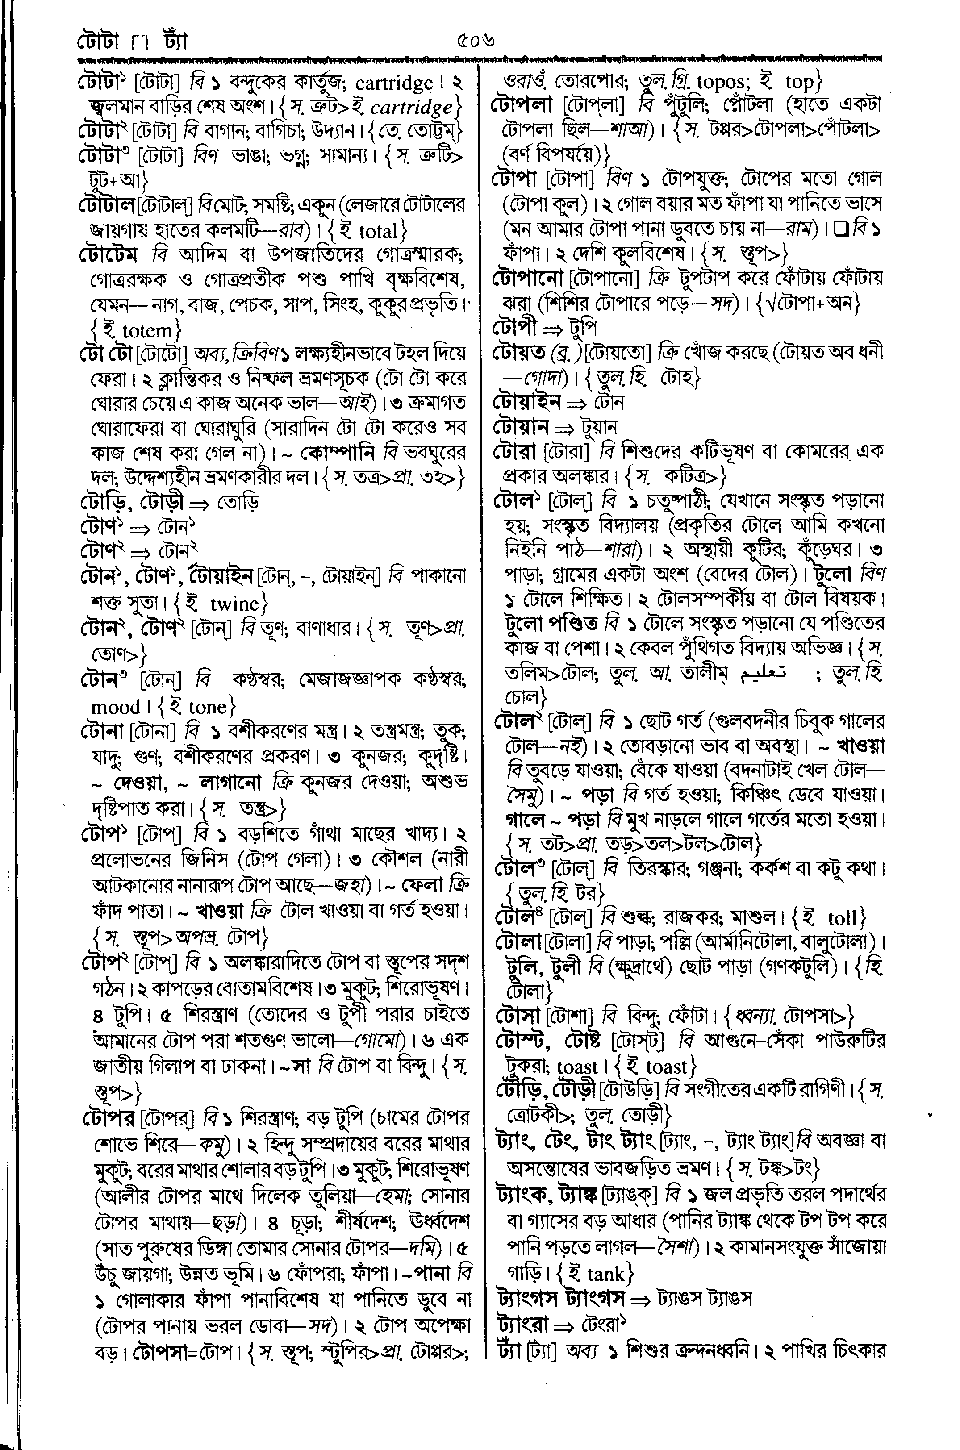 টোটা ┌┐ ট্যাঁ
৫০৬
টোটা১ [টোটা] বি ১ বন্দুকের কার্তুজ; cartridge। ২
জ্বলমান বাড়ির শেষ অংশ। {স. ত্রুট> ই. cartridge}
টোটা২ [টোটা] বি বাগান; বাগিচা; উদ্যান। {তে. তোট্টম}
টোটা৩ [টোটা] বিণ ভাঙা; ভগ্ন; সামান্য। {স. ত্রুটি>
টুট+আ}
টোটাল [টোটাল্] বি মোট; সমষ্টি; একুন (লেজারে টোটালের
জায়গায় হাতের কলমটি—রাব)। {ই total}
টোটেম বি আদিম বা উপজাতিদের গোত্রস্মারক;
গোত্ররক্ষক ও গোত্রপ্রতীক পশু পাখি বৃক্ষবিশেষ,
যেমন—নাগ, বাজ, পেচক, সাপ, সিংহ, কুকুর প্রভৃতি।
{ই totem}
টো টো [টোটো] অব্য, ক্রিবিণ ১ লক্ষ্যহীনভাবে টহল দিয়ে
ফেরা। ২ ক্লান্তিকর ও নিষ্ফল ভ্রমণসূচক (টো টো করে
ঘোরার চেয়ে এ কাজ অনেক ভাল—আই)। ৩ ক্রমাগত
ঘোরাফেরা বা ঘোরাঘুরি (সারাদিন টো টো করেও সব
কাজ শেষ করা গেল না)। ~ কোম্পানি বি ভবঘুরের
দল; উদ্দেশ্যহীন ভ্রমণকারীর দল। {স. তত্র>প্রা. ওহ>}
টোড়ি, টোড়ী ⇒ তোড়ি
টোণ১ ⇒ টোন১
টোণ২ ⇒ টোন২
টোন১, টোণ১, টোয়াইন [টোন্, –, টোয়াইন্] বি পাকানো
শক্ত সুতা। {ই twine}
টোন২, টোণ২ [টোন্] বি তূণ; বাণাধার। {স. তূণ>প্রা.
তোণ>}
টোন৩ [টোন্] বি কণ্ঠস্বর; মেজাজজ্ঞাপক কণ্ঠস্বর;
mood। {ই tone}
টোনা [টোনা] বি ১ বশীকরণের মন্ত্র। ২ তন্ত্রমন্ত্র; তুক;
যাদু; গুণ; বশীকরণের প্রকরণ। ৩ কুনজর; কুদৃষ্টি।
~ দেওয়া, ~ লাগানো ক্রি কুনজর দেওয়া; অশুভ
দৃষ্টিপাত করা। {স. তন্ত্র>}
টোপ১ [টোপ্] বি ১ বড়শিতে গাঁথা মাছের খাদ্য। ২
প্রলোভনের জিনিস (টোপ গেলা)। ৩ কৌশল (নারী
আটকানোর নানারূপ টোপ আছে—জহা)। ~ ফেলা ক্রি
ফাঁদ পাতা। ~ খাওয়া ক্রি টোল খাওয়া বা গর্ত হওয়া।
{স. স্তূপ> অপভ্র. টোপ}
টোপ২ [টোপ্] বি ১ অলঙ্কারাদিতে টোপ বা স্তূপের সদৃশ
গঠন। ২ কাপড়ের বোতামবিশেষ। ৩ মুকুট; শিরোভূষণ।
৪ টুপি। ৫ শিরস্ত্রাণ (তোদের ও টুপী পরার চাইতে
আমানের টোপ পরা শতগুণ ভালো—গোমো)। ৬ এক
জাতীয় গিলাপ বা ঢাকনা। ~সা বি টোপ বা বিন্দু। {স.
স্তূপ>}
টোপর [টোপর্] বি ১ শিরস্ত্রাণ; বড় টুপি (চামের টোপর
শোভে শিরে—কমু)। ২ হিন্দু সম্প্রদায়ের বরের মাথার
মুকুট; বরের মাথার শোলার বড় টুপি। ৩ মুকুট; শিরোভূষণ
(আলীর টোপর মাথে দিলেক তুলিয়া—হেমা; সোনার
টোপর মাথায়—ছড়া)। ৪ চূড়া; শীর্ষদেশ; ঊর্ধ্বদেশ
(সাত পুরুষের ডিঙ্গা তোমার সোনার টোপর—দমি)। ৫
উঁচু জায়গা; উন্নত ভূমি। ৬ ফোঁপরা; ফাঁপা। ~পানা বি
১ গোলাকার ফাঁপা পানাবিশেষ যা পানিতে ডুবে না
(টোপর পানায় ভরল ডোবা—সদ)। ২ টোপ অপেক্ষা
বড়। টোপসা=টোপ। {স. স্তূপ; স্টুপির>প্রা. টোপ্পর>;
ওরাওঁ. তোরপোর; তুল. গ্রি. topos; ই. top}
টোপলা [টোপ্‌লা] বি পুঁটুলি; পোঁটলা (হাতে একটা
টোপলা ছিল—শাআ)। {স. টপ্পর>টোপলা>পোঁটলা>
(বর্ণ বিপর্যয়ে)}
টোপা [টোপা] বিণ ১ টোপযুক্ত; টোপের মতো গোল
(টোপা কুল)। ২ গোল বয়ার মত ফাঁপা যা পানিতে ভাসে
(মন আমার টোপা পানা ডুবতে চায় না—রাম)। ❑ বি ১
ফাঁপা। ২ দেশি কুলবিশেষ। {স. স্তূপ>}
টোপানো [টোপানো] ক্রি টুপটাপ করে ফোঁটায় ফোঁটায়
ঝরা (শিশির টোপারে পড়ে—সদ)। {√টোপা+অন}
টোপী ⇒ টুপি
টোয়ত (ব্র.) [টোয়তো] ক্রি খোঁজ করছে (টোয়ত অব ধনী
—গোদা)। {তুল. হি. টোহ}
টোয়াইন ⇒ টোন
টোয়ান ⇒ টুয়ান
টোরা [টোরা] বি শিশুদের কটিভূষণ বা কোমরের এক
প্রকার অলঙ্কার। {স. কটিত্র>}
টোল১ [টোল্] বি ১ চতুষ্পাঠী; যেখানে সংস্কৃত পড়ানো
হয়; সংস্কৃত বিদ্যালয় (প্রকৃতির টোলে আমি কখনো
নিইনি পাঠ—শারা)। ২ অস্থায়ী কুটির; কুঁড়েঘর। ৩
পাড়া; গ্রামের একটা অংশ (বেদের টোল)। টুলো বিণ
১ টোলে শিক্ষিত। ২ টোলসম্পর্কীয় বা টোল বিষয়ক।
টুলো পণ্ডিত বি ১ টোলে সংস্কৃত পড়ানো যে পণ্ডিতের
কাজ বা পেশা। ২ কেবল পুঁথিগত বিদ্যায় অভিজ্ঞ। {স.
তলিম>টোল; তুল. আ. তালীম্ تعليم ; তুল. হি
চোল}
টোল২ [টোল্] বি ১ ছোট গর্ত (গুলবদনীর চিবুক গালের
টোল—নই)। ২ তোবড়ানো ভাব বা অবস্থা। ~ খাওয়া
বি তুবড়ে যাওয়া; বেঁকে যাওয়া (বদনাটাই খেল টোল—
সৈমু)। ~ পড়া বি গর্ত হওয়া; কিঞ্চিৎ ডেবে যাওয়া।
গালে ~ পড়া বি মুখ নাড়লে গালে গর্তের মতো হওয়া।
{স. তট>প্রা. তড়>তল>টল>টোল}
টোল৩ [টোল্] বি তিরস্কার; গঞ্জনা; কর্কশ বা কটু কথা।
{তুল. হি টর}
টোল৪ [টোল্] বি শুল্ক; রাজকর; মাশুল। {ই toll}
টোলা [টোলা] বি পাড়া; পল্লি (আর্মানিটোলা, বালুটোলা)।
টুলি, টুলী বি (ক্ষুদ্রার্থে) ছোট পাড়া (গণকটুলি)। {হি
টোলা}
টোসা [টোশা] বি বিন্দু; ফোঁটা। {ধ্বন্যা. টোপসা>}
টোস্ট, টোষ্ট [টোস্‌ট্] বি আগুনে-সেঁকা পাউরুটির
টুকরা; toast। {ই toast}
টৌড়ি, টৌড়ী [টোউড়ি] বি সংগীতের একটি রাগিণী। {স.
ত্রোটকী>; তুল. তোড়ী}
ট্যাং, টেং, ট্যাং ট্যাং [ট্যাং, –, ট্যাং ট্যাং] বি অবজ্ঞা বা
অসন্তোষের ভাবজড়িত ভ্রমণ। {স. টঙ্ক>টং}
ট্যাংক, ট্যাঙ্ক [ট্যাঙ্‌ক্] বি ১ জল প্রভৃতি তরল পদার্থের
বা গ্যাসের বড় আধার (পানির ট্যাঙ্ক থেকে টপ টপ করে
পানি পড়তে লাগল—সৈশা)। ২ কামানসংযুক্ত সাঁজোয়া
গাড়ি। {ই tank}
ট্যাংগস ট্যাংগস ⇒ ট্যাঙস ট্যাঙস
ট্যাংরা ⇒ টেংরা১
ট্যাঁ [ট্যাঁ] অব্য ১ শিশুর ক্রন্দনধ্বনি। ২ পাখির চিৎকার